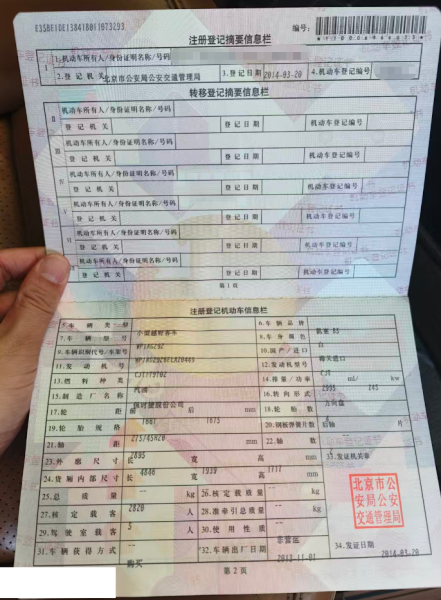 注册登记摘要信息栏
编号:
I 1.机动车所有人/身份证明名称/号码
2.登记机关 北京市公安局公安交通管理局 3.登记日期 2014-03-20 4.机动车登记编号
转移登记摘要信息栏
II 机动车所有人/身份证明名称/号码
登记机关 登记日期 机动车登记编号
III 机动车所有人/身份证明名称/号码
登记机关 登记日期 机动车登记编号
IV 机动车所有人/身份证明名称/号码
登记机关 登记日期 机动车登记编号
V 机动车所有人/身份证明名称/号码
登记机关 登记日期 机动车登记编号
VI 机动车所有人/身份证明名称/号码
登记机关 登记日期 机动车登记编号
机动车所有人/身份证明名称/号码
登记机关 登记日期 机动车登记编号
第1页
注册登记机动车信息栏
5.车辆类型 小型越野客车 6.车辆品牌
7.车辆型号 8.车身颜色
9.车辆识别代号/车架号 10.国产/进口
11.发动机号 CJT179702 12.发动机型号 CJT
13.燃料种类 汽油 14.排量/功率 2995 ml/ 245 kw
15.制造厂名称 保时捷股份公司 16.转向形式 方向盘
17.轮距 前 1661 后 1675 mm 18.轮胎数
19.轮胎规格 275/45R20 20.钢板弹簧片数 后轴 片
21.轴距 2895 mm 22.轴数
23.外廓尺寸 长 4846 宽 1939 高 mm 33.发证机关章
24.货厢内部尺寸 长 宽 高 mm
25.总质量 2820 kg 26.核定载质量 -- kg
27.核定载客 5 人 28.准牵引总质量 -- kg
29.驾驶室载客 -- 人 30.使用性质 非营运
31.车辆获得方式 购买 32.车辆出厂日期 2013-11-01 34.发证日期 2014-03-20
北京市公
安局公安
交通管理局
第2页